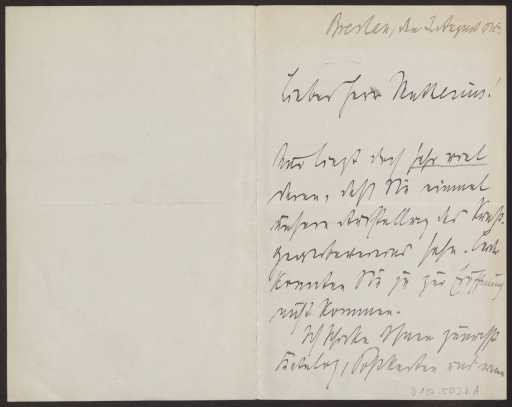 Breslau, den 2. August 04.
Lieber Herr Muthesius!
Mir liegt doch sehr viel
daran, daß Sie einmal
unsere Ausstellung des Kunst-
gewerbevereins sehn. Leider
konnten Sie ja zur Eröffnung
nicht kommen.
Ich schicke Ihnen zunächst
Katalog, Postkarten und